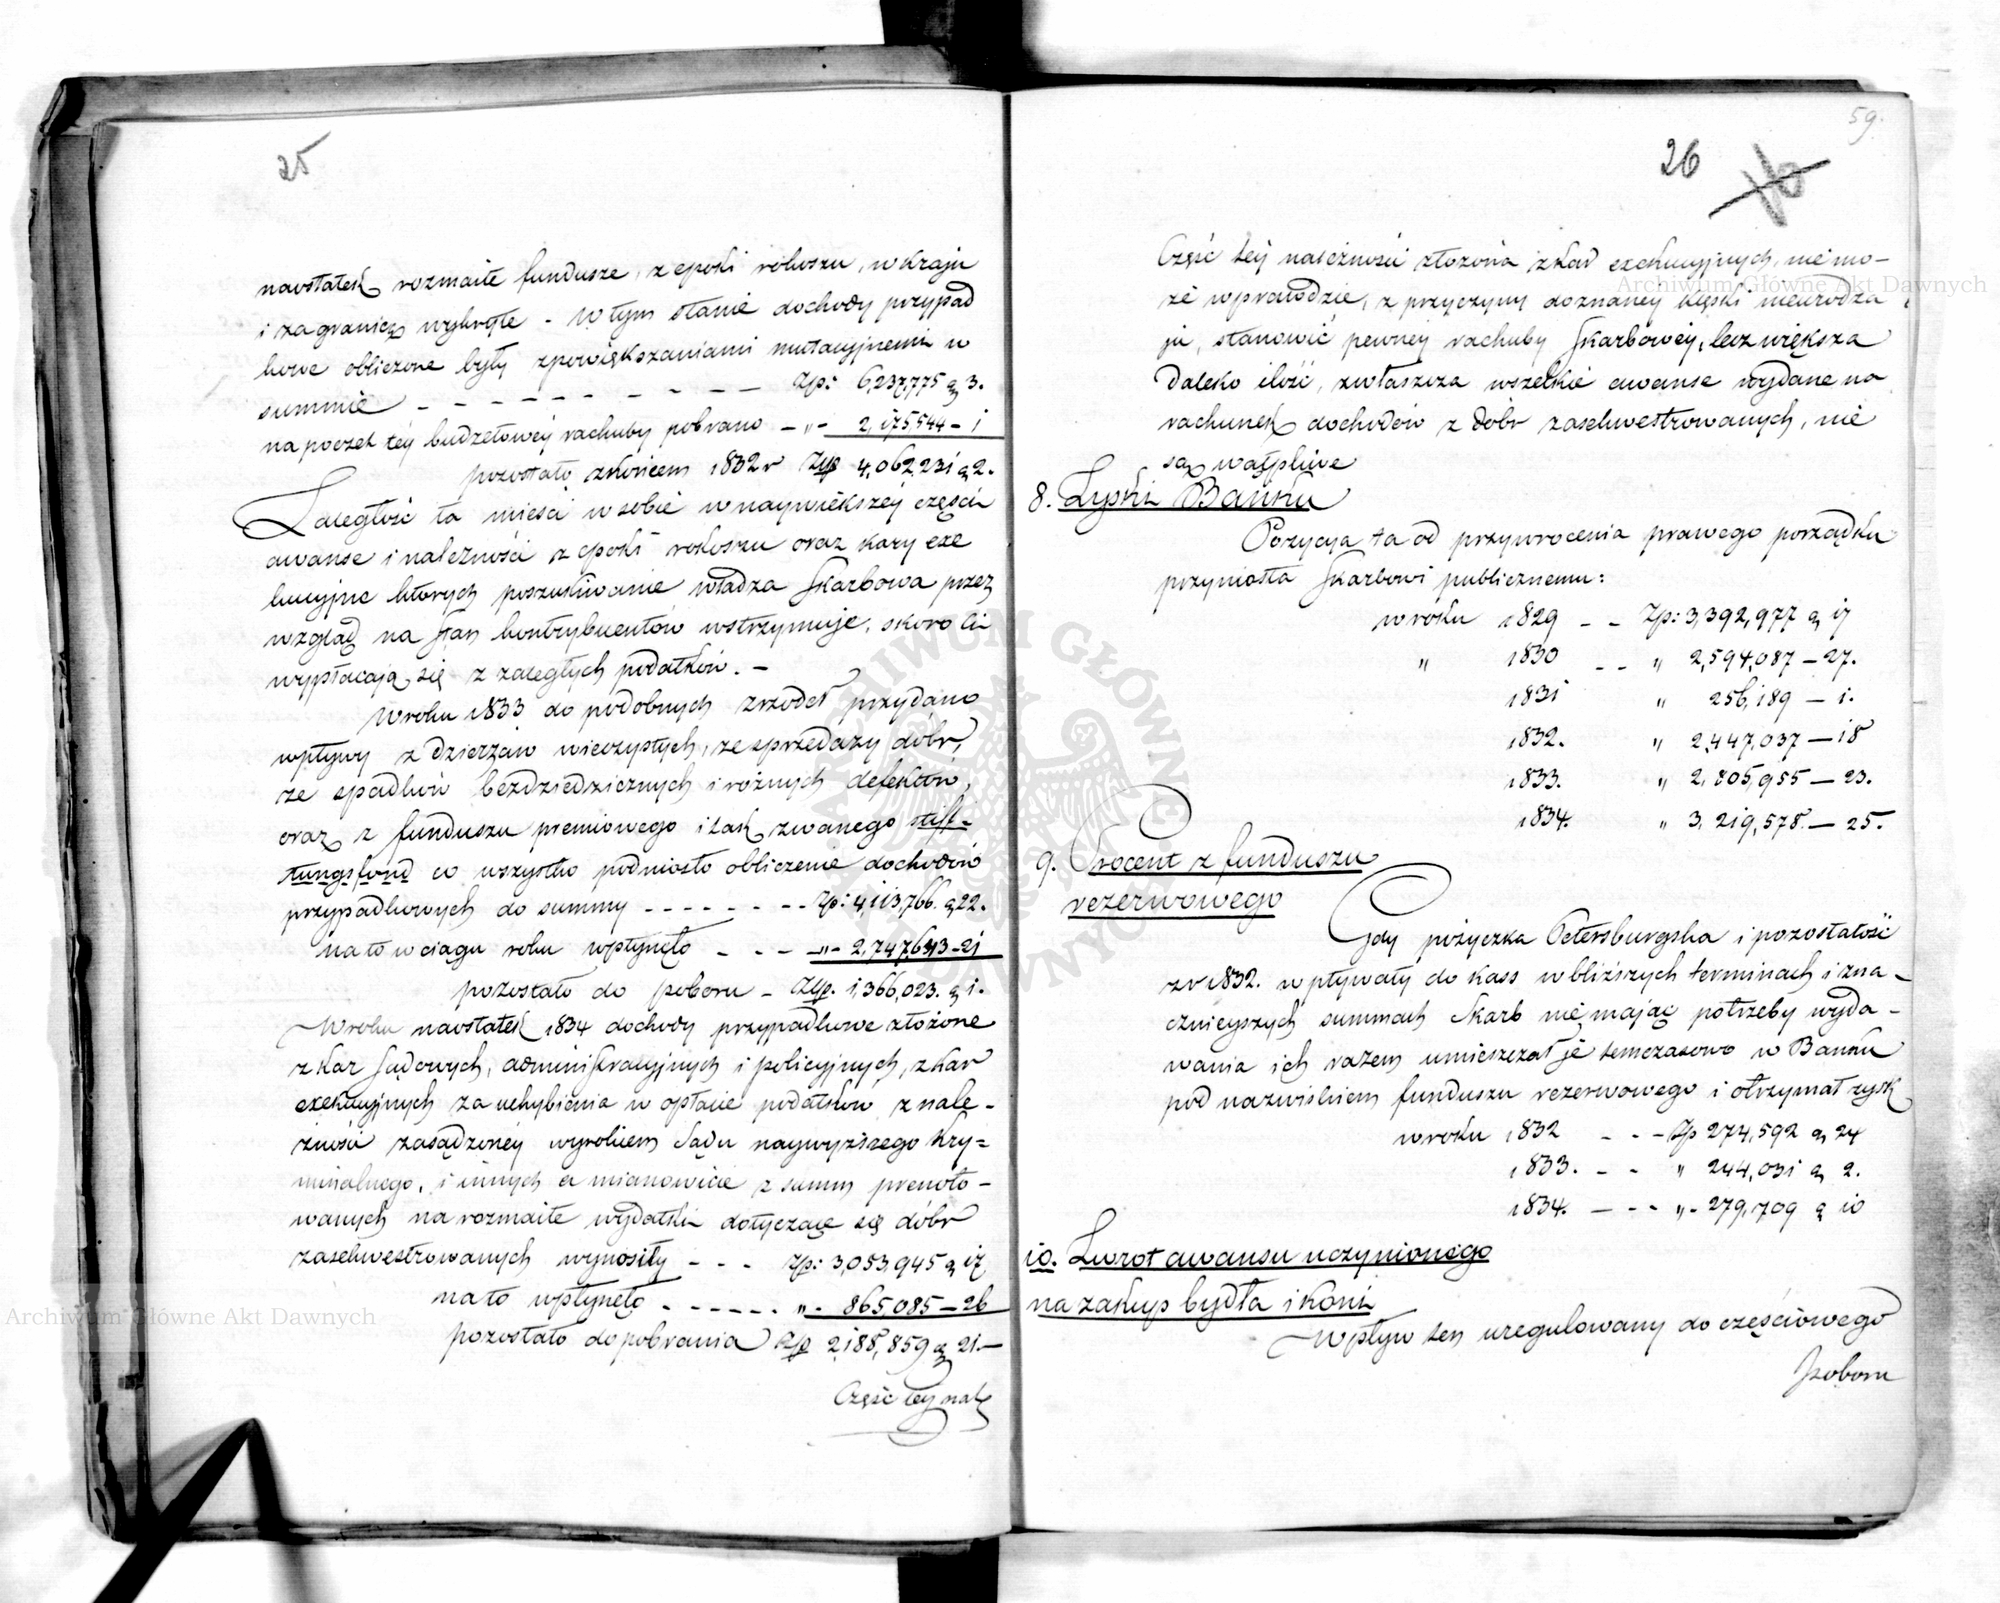 25
naostatek rozmaite fundusze, z epoki rokoszu, w kraju
i za granicą wykryte. W tym stanie dochody przypad
kowe obliczone były zpowiększaniami mutacyjnemi w
summie - - - - - - - - - Zp: 6,237,775 g 3.
na poczet téy budżetowéy rachuby pobrano - " - 2,175,544 - 1
pozostało zkońcem 1832 r Złp 4,062,231 g 2.
Zaległość ta mieści w sobie w naywiększéy części
awanse i należności z epoki rokoszu oraz kary exe
kucyjne których poszukiwanie władza Skarbowa przez
wzgląd na stan kontrybuentów wstrzymuje, skoro ci
wypłacają się z zaległych podatków. -
W roku 1833 do podobnych źrzodeł przydano
wpływy z dzierżaw wieczystych, ze sprzedaży dóbr,
ze spadków bezdziedzicznych i różnych defektów,
oraz z funduszu premiowego i tak zwanego stift-
tungsfond co wszystko podniosło obliczenie dochodów
przypadkowych do summy - - - - - - - Zp: 4,113,766. g 22.
na to w ciągu roku wpłynęło - - - - " - 2,747,643 - 21
pozostało do poboru - Złp. 1,366,023. g 1.
W roku naostatek 1834 dochody przypadkowe złożone
z kar sądowych, administracyjnych i policyjnych, z kar
exekucyjnych za uchybienia w opłacie podatków, z nale-
żności zasądzonéy wyrokiem Sądu naywyższego kry=
minalnego, i innych a mianowicie z summ prenoto-
wanych na rozmaite wydatki dotyczące się dóbr
zasekwestrowanych wynosiły - - - Zp: 3,053,945 g 17
na to wpłynęło - - - - - - " - 865,085 - 26
pozostało do pobrania Złp 2,188,859 g 21. -
Część téy nal
59.
26
16
Część téy należności złożona z kar exekucyjnych, nie mo-
że wprawdzie, z przyczyny doznaney klęski nieurodza
ju, stanowić pewnéy rachuby Skarbowéy, lecz większa
daleko ilość, zwłaszcza wszelkie awanse wydane na
rachunek dochodów z dóbr zasekwestrowanych, nie
są wątpliwe
8. Zyski Banku
Pozycja ta od przywrócenia prawego porządku
przyniosła Skarbowi publicznemu:
w roku 1829 - - Zp: 3,392,977 g 17
" 1830 - - " 2,594,087 - 27.
1831 " 256,189 - 1.
1832. " 2,447,037 - 18
1833. " 2,805,955 - 23.
1834. " 3,219,578. - 25.
9. Procent z funduszu
rezerwowego
Gdy pożyczka Petersburgska i pozostałość
z r 1832. wpływały do kass w bliższych terminach i zna-
cznieyszych summach Skarb nie mając potrzeby wyda-
wania ich razem umieszczał je temczasowo w Banku
pod nazwiskiem funduszu rezerwowego i otrzymał zysk
w roku 1832 - - - Zp 274,592 g 24
1833. - - " 244,031 g 2.
1834. - - - " - 279,709 g 10
10. Zwrot awansu uczynionego
na zakup bydła i koni
Wpływ ten uregulowany do częściowego
poboru
Archiwum Główne Akt Dawnych
Archiwum Główne Akt Dawnych
ARCHIWUM GŁÓWNE AKT DAWNYCH